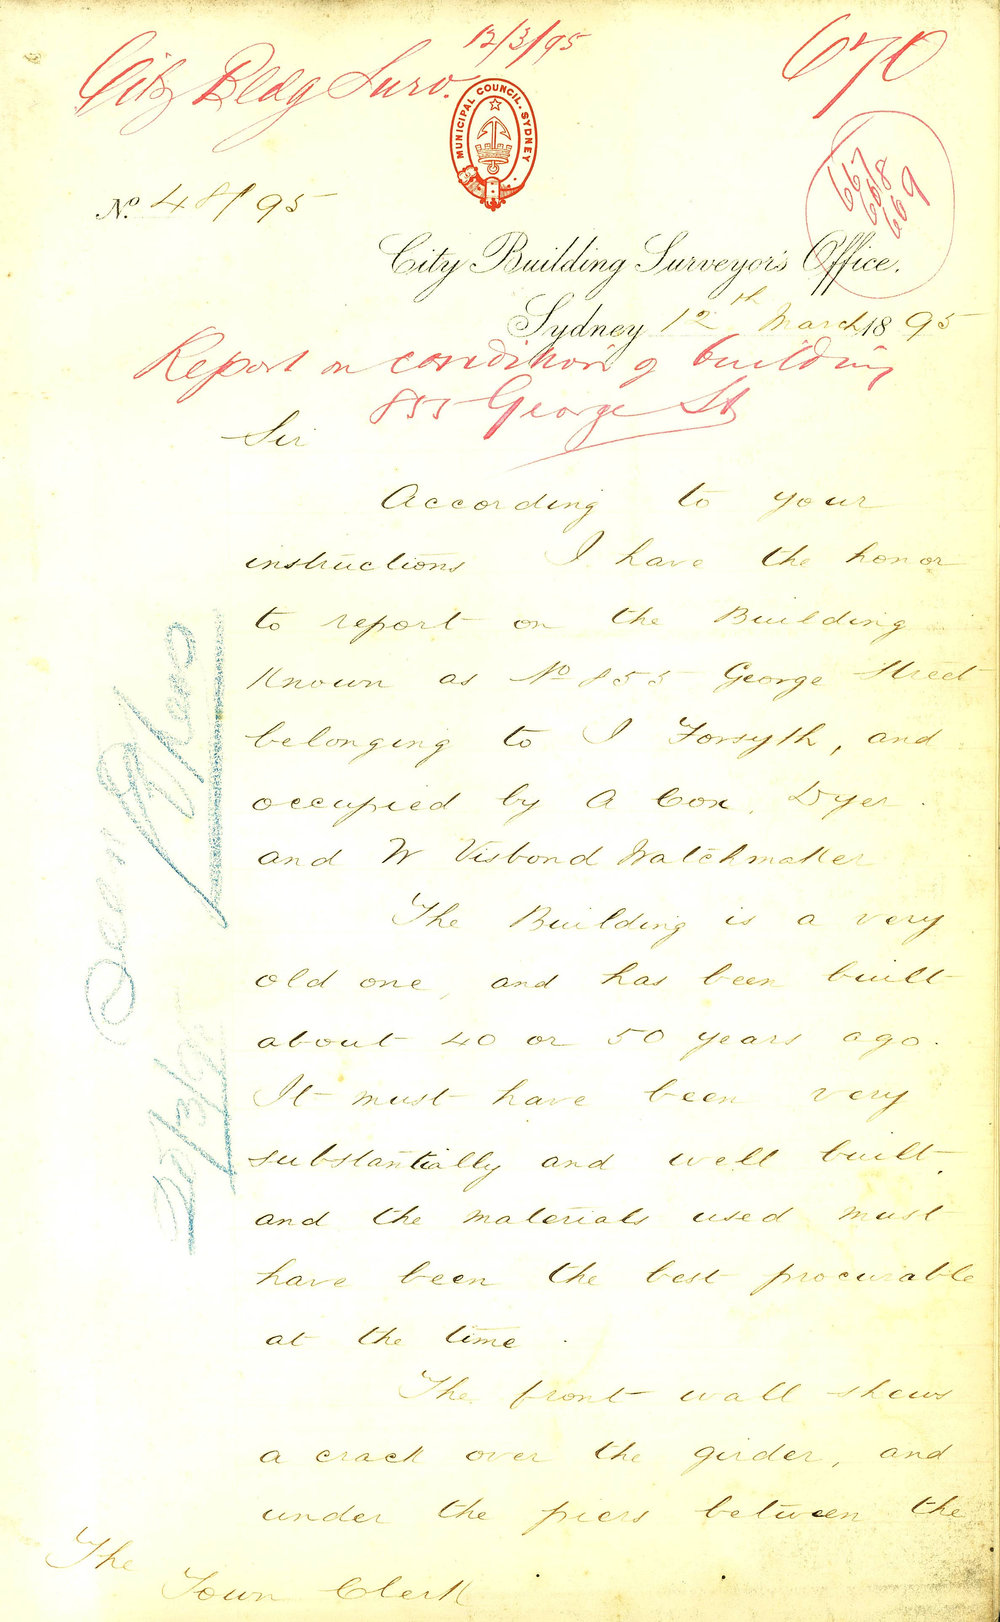 12/3/95
City Bldg Surv.
670
MUNICIPAL COUNCIL. SYDNEY
667
668
669
No. 48/95
City Building Surveyor's Office.
Sydney 12th March 1895
Report on condition of building
855 George St
Sir
According to your
instructions I have the honor
to report on the Building
Known as No 855 George Street
belonging to I Forsyth, and
occupied by A Cox, Dyer
and W Visbond Watchmaker
The Building is a very
old one, and has been built
about 40 or 50 years ago.
It must have been very
substantially and well built,
and the materials used must
have been the best procurable
at the time.
The front wall shews
a crack over the girder, and
under the piers between the
The
Town Clerk
Seen
25/3/95